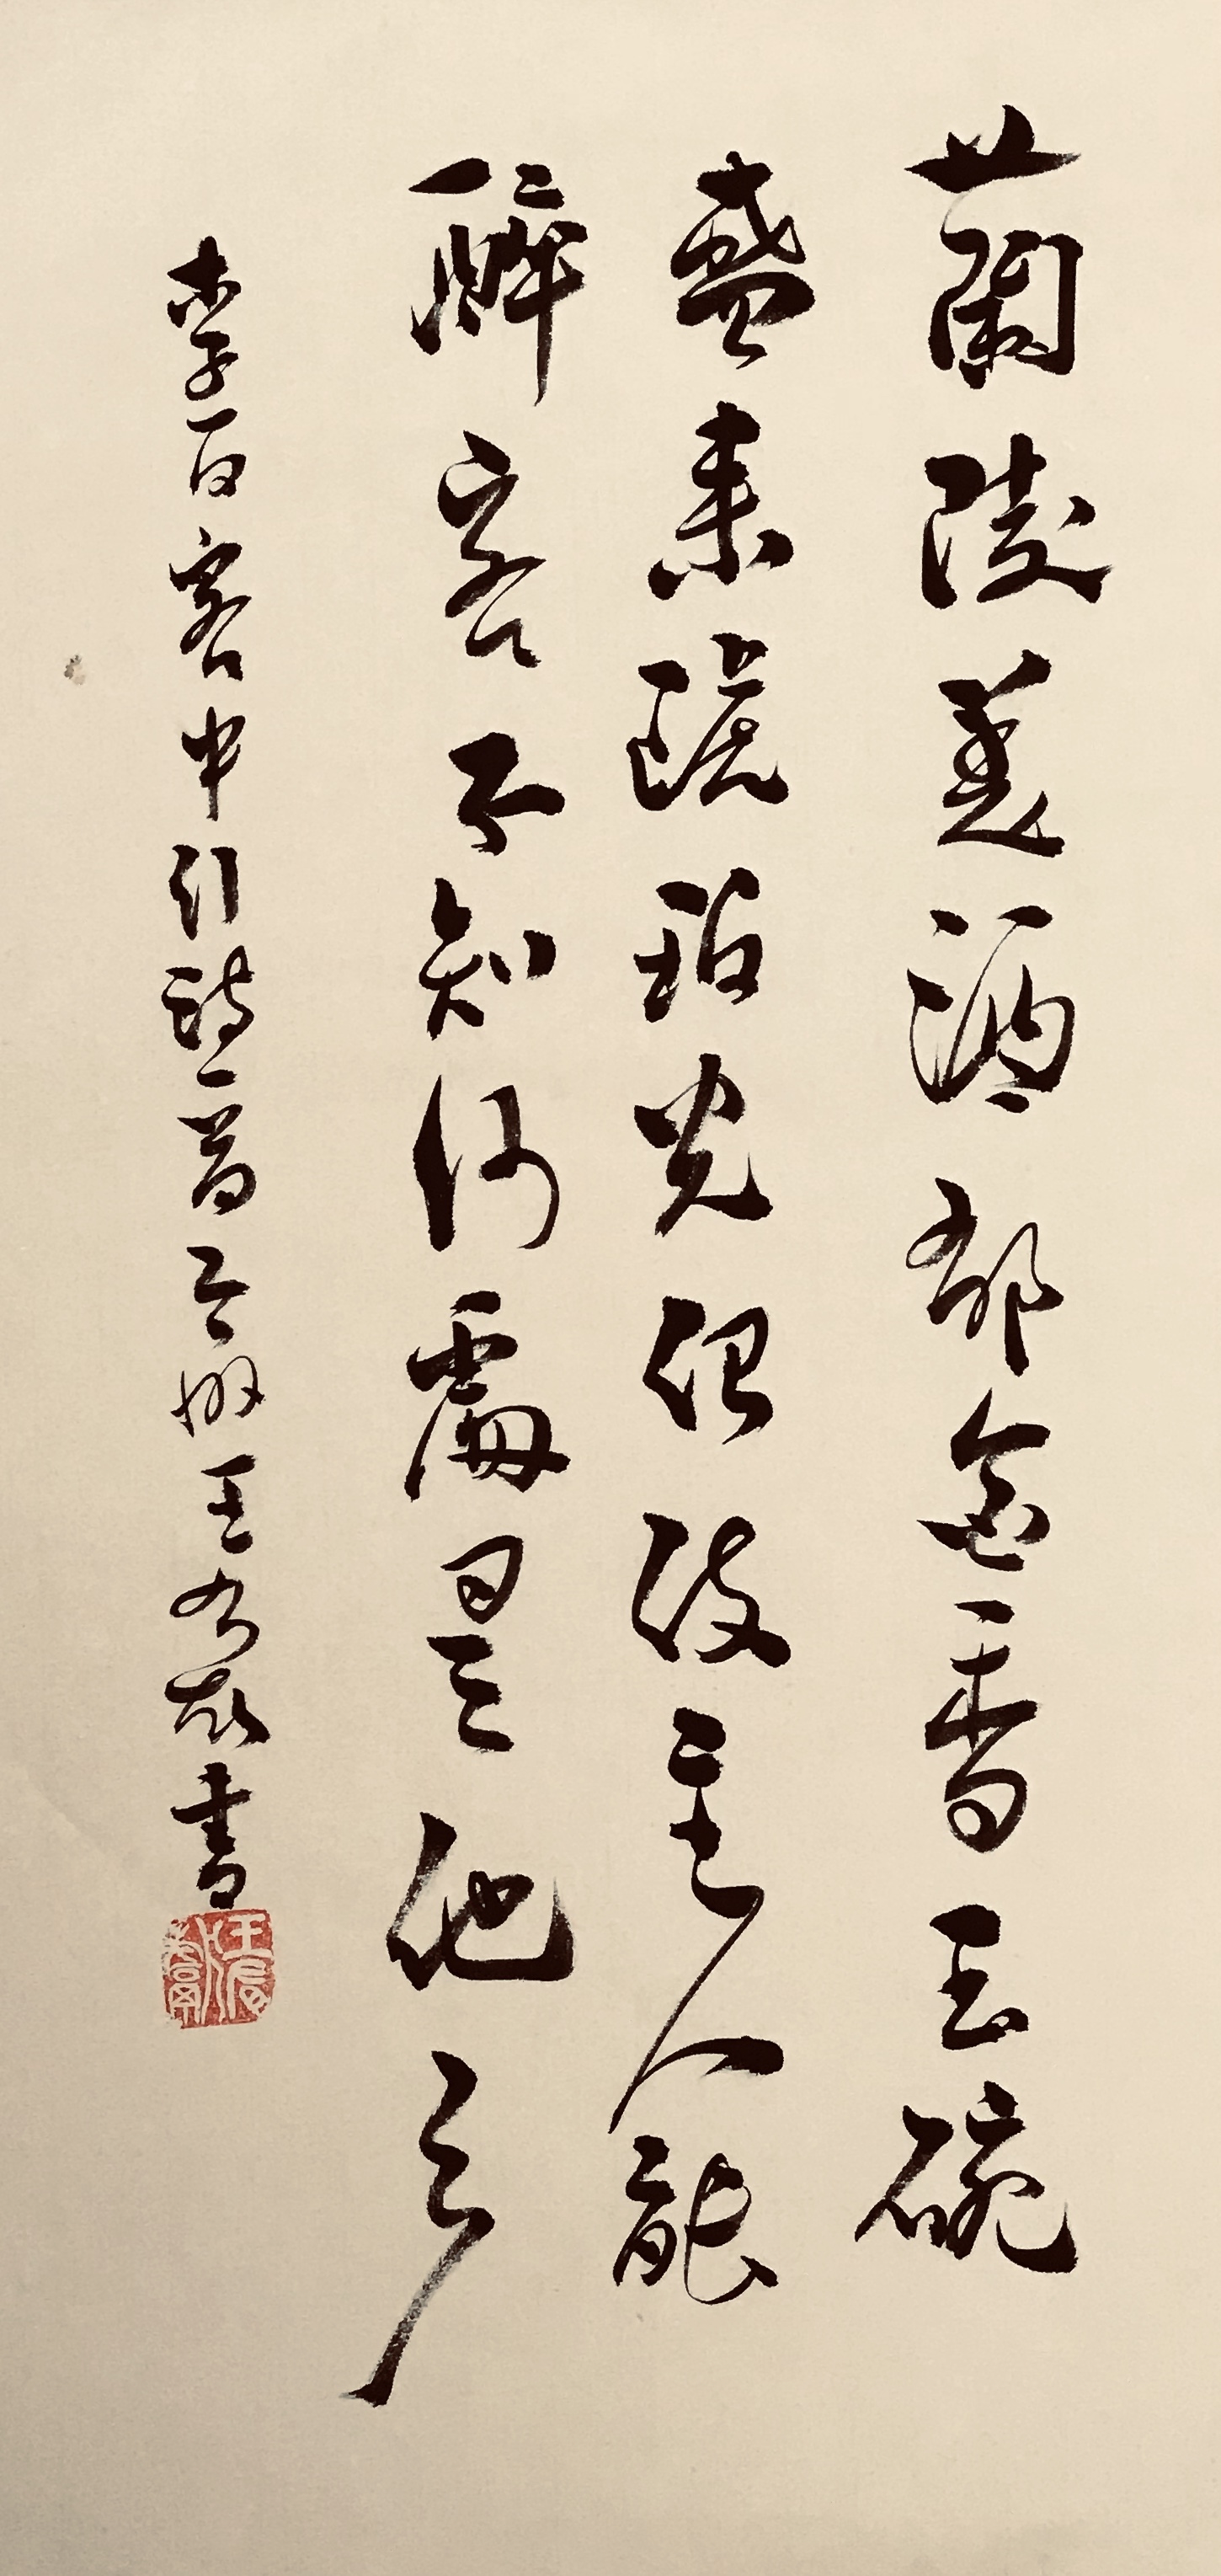 蘭陵美酒鬱金香玉碗
盛来琥珀光但使主人能
醉客不知何處是他乡
李白客中行詩一首
王書